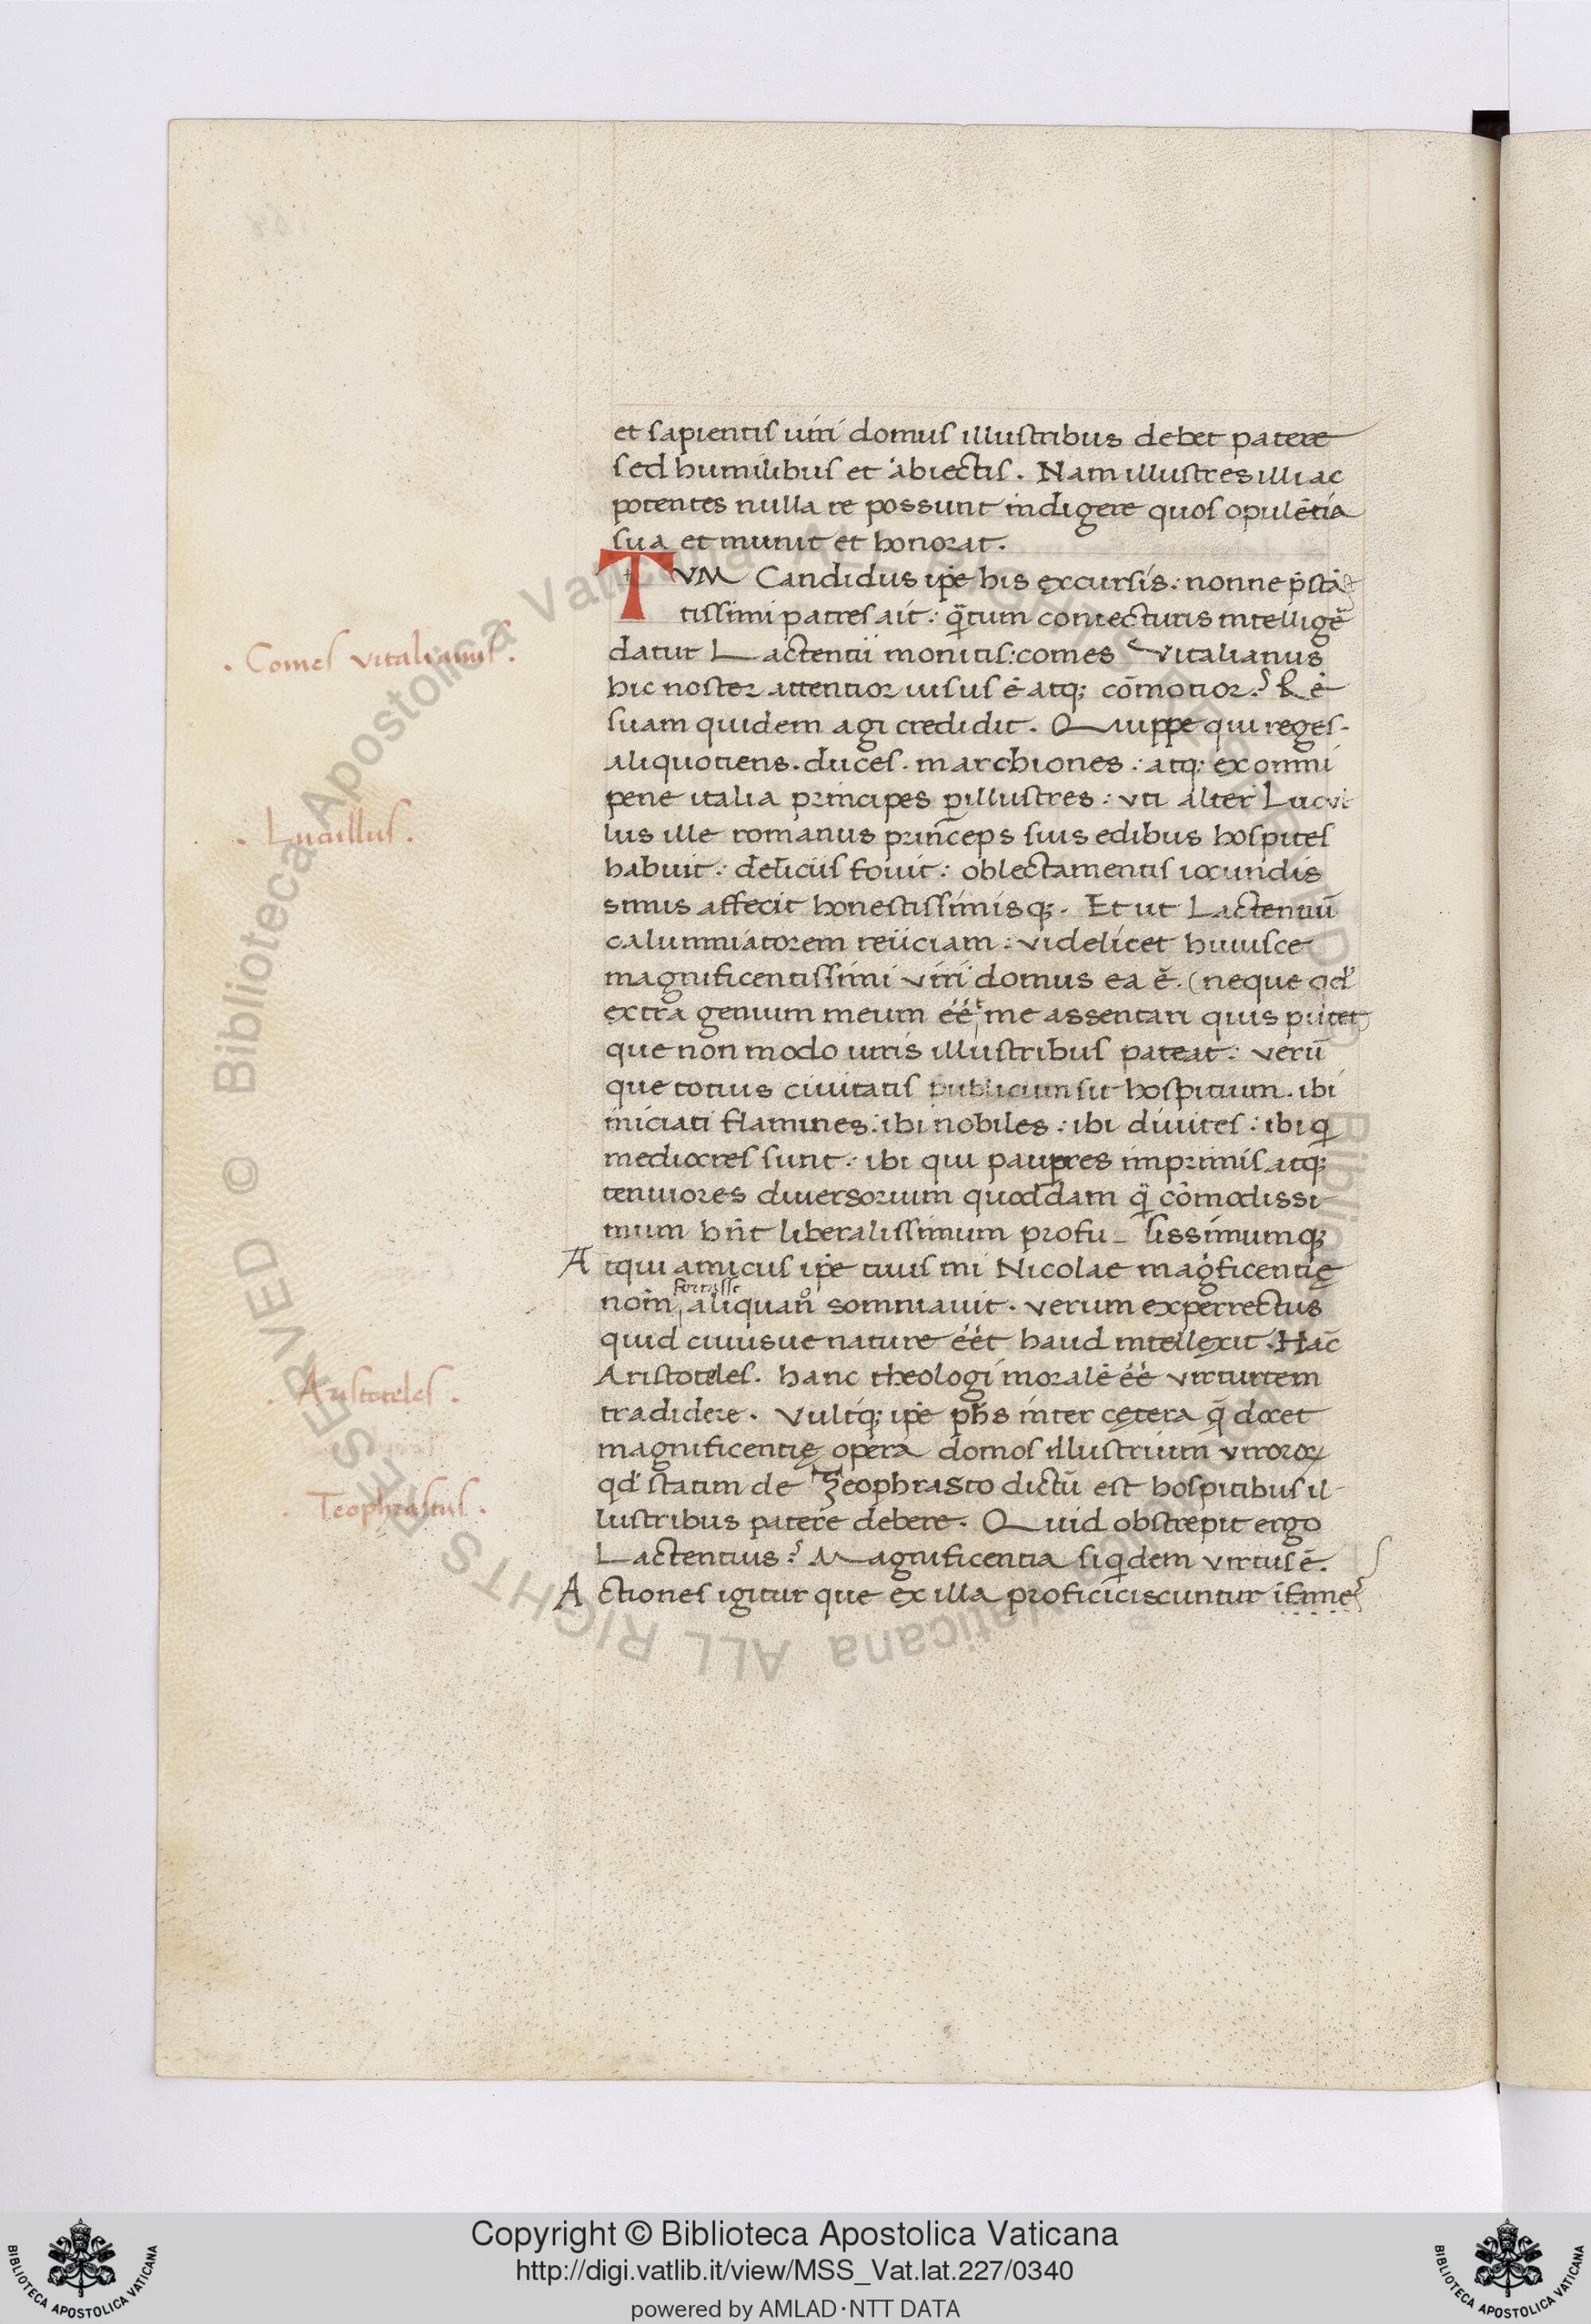 et sapientis uiri domus illustribus debet patere
sed humilibus et abiectis. Nam illustres illi ac
potentes nulla re possunt indigere quos opulētia
sua et munit et honorat.
TVM Candidus ip̄e his excursis: nonne p̄stā
tissimi patres ait: q̄tum coniecturis intelligē
· Comes vitalianus ·
datur Lactentii monitis: comes Vitalianus
hic noster attentior uisus ē atq; cōmotior? Rē
suam quidem agi credidit. Quippe qui reges.
aliquotiens. duces. marchiones: atq; ex omni
pene italia principes p̱illustres: vti alter Lucul
· Lucillus ·
lus ille romanus princeps suis edibus hospites
habuit: deliciis fouit: oblectamentis iocundis
simis affecit honestissimisq;. Et ut Lactentiū
calumniatorem reiiciam: videlicet huiusce
magnificentissimi viri domus ea ē. (neque qd'
extra genium meum ēē me assentari quis putet)
que non modo uiris illustribus pateat: verū
que totius ciuitatis publicum sit hospitium. ibi
iniciati flamines: ibi nobiles: ibi diuites: ibi q
mediocres sunt: ibi qui paup̱res imprimis atq;
tenuiores diuersorium quoddam q̄ cōmodissi
mum hn̄t liberalissimum profu- sissimumq;
Atqui amicus ip̄e tuus mi Nicolae mag̊ficentię
fortasse
noīn aliquan̊ somniauit. verum experrectus
quid cuiusue nature ēēt haud intellexit. Hāc
· Aristoteles ·
Aristoteles. hanc theologi moralē ēē virtutem
tradidere. Vultq; ip̄e ph̄s inter cętera q̄ docet
magnificentię opera domos illustrium viroꝝ
· Teophrastus ·
qd' statim de Teophrasto dictū est hospitibus il-
lustribus patere debere. Quid obstrepit ergo
Lactentius? Magnificentia siqdem virtus ē.
Actiones igitur que ex illa proficiciscuntur
Copyright © Biblioteca Apostolica Vaticana
http://digi.vatlib.it/view/MSS_Vat.lat.227/0340
powered by AMLAD·NTT DATA
© Biblioteca Apostolica Vaticana ALL RIGHTS RESERVED
BIBLIOTECA APOSTOLICA VATICANA
BIBLIOTECA APOSTOLICA VATICANA